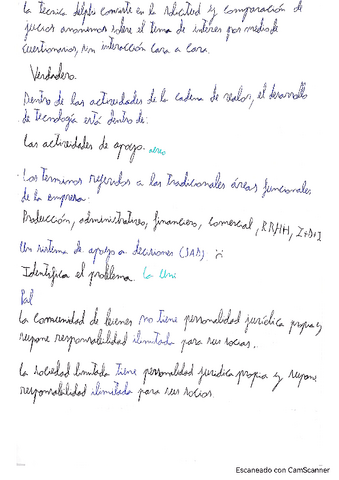 La técnica delphi consiste en la solicitud y comparación de
juicios anónimos sobre el tema de interés por medio de
cuestionarios, sin interacción cara a cara.
Verdadero.
Dentro de las actividades de la cadena de valor, el desarrollo
de tecnología está dentro de:
Las actividades de apoyo.
Los términos referidos a las tradicionales áreas funcionales
de la empresa:
Producción, administrativas, financiero, comercial, RRHH, I+D+I
Un sistema de apoyo a decisiones (SAD) :(
Identifica el problema. La Uni
Pal
La comunidad de bienes no tiene personalidad jurídica propia y
supone responsabilidad ilimitada para sus socios.
La sociedad limitada tiene personalidad jurídica propia y supone
responsabilidad limitada para sus socios.
Escaneado con CamScanner